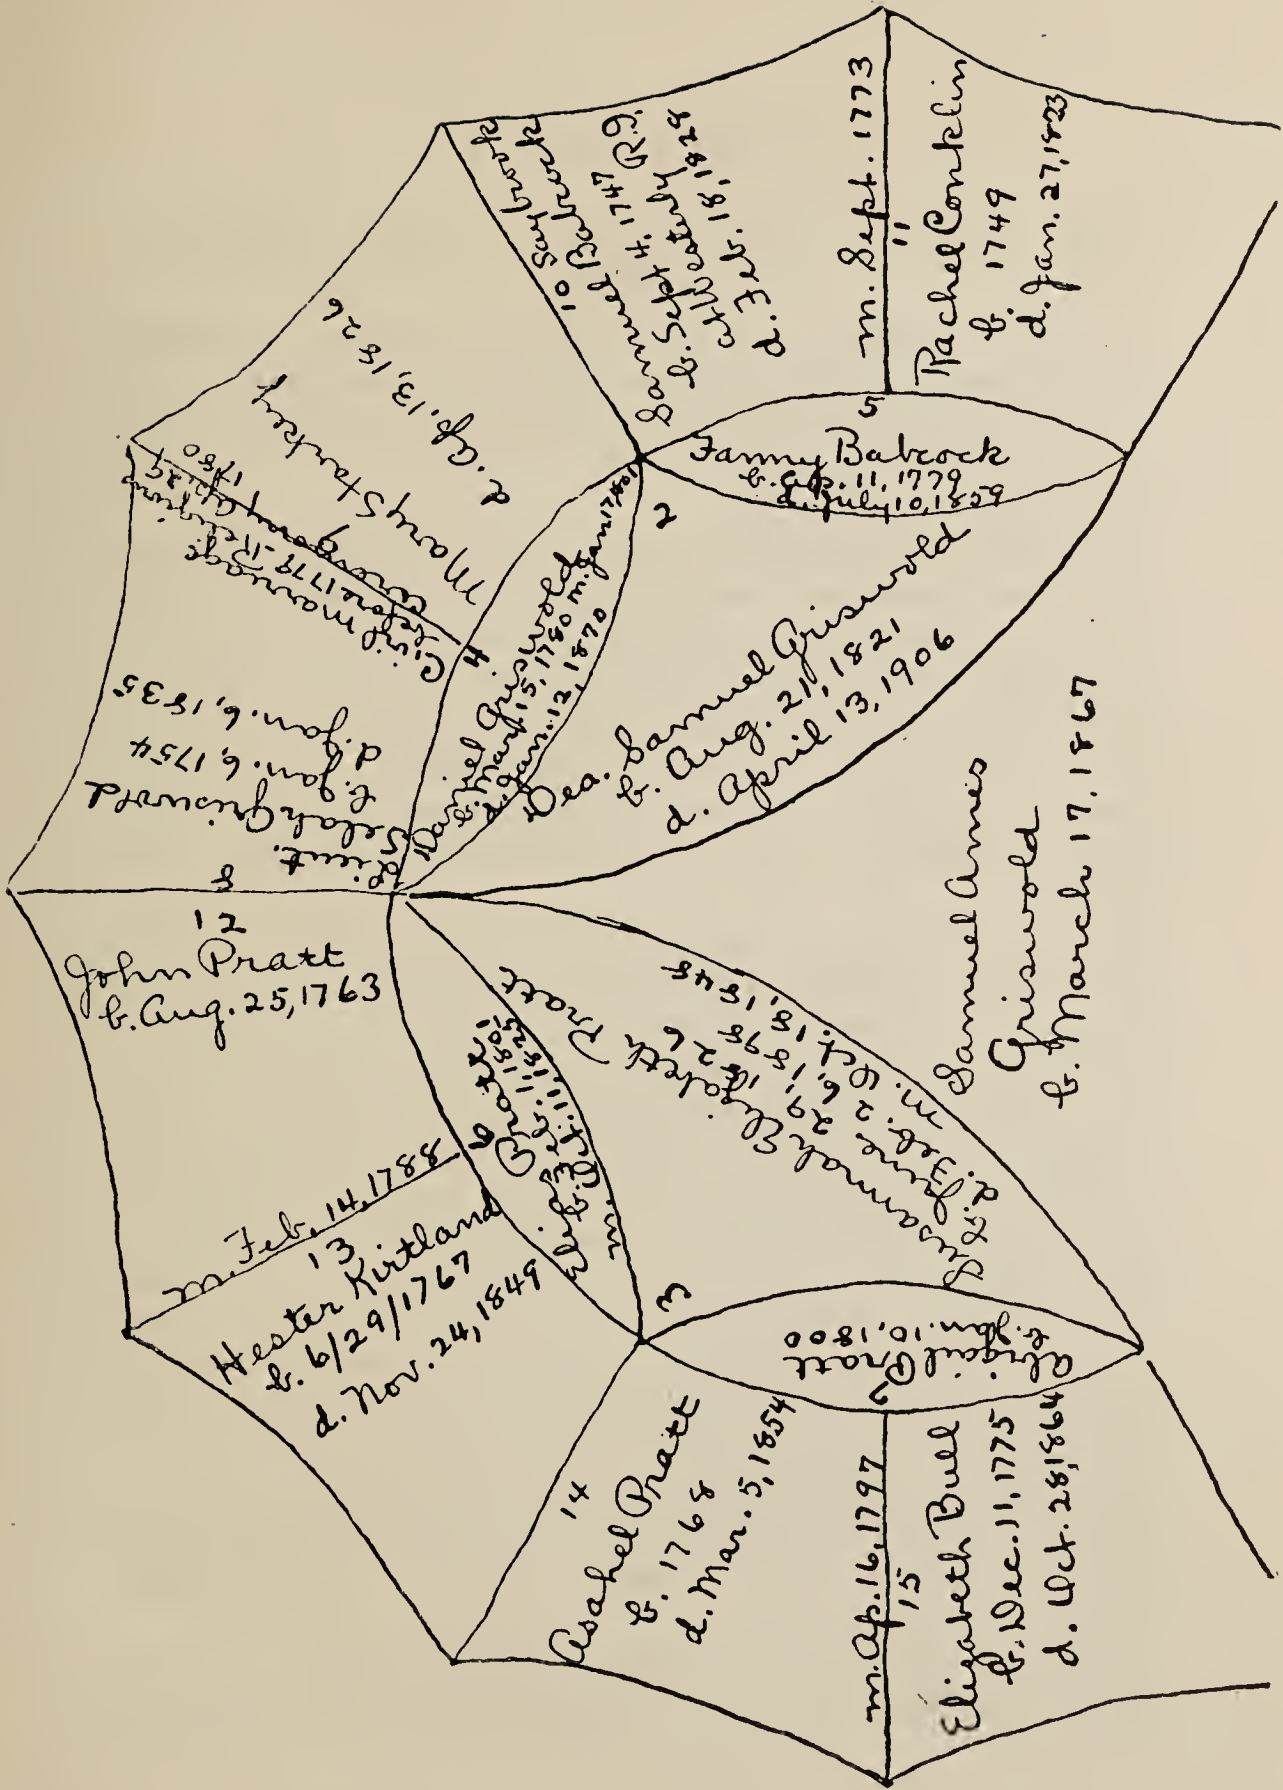 Samuel Ames
Griswold
b. March 17, 1867
2
Dea. Samuel Griswold
b. Aug. 21, 1821
d. April 13, 1906
3
Susannah Elizabeth Pratt
b. June 29, 1826
d. Feb. 26, 1898
m. Oct. 18, 1848
4
Daniel Griswold
b. Mar. 15, 1780 m. Jan 17, 1801
d. Jan. 12, 1870
5
Fanny Babcock
b. Ap. 11, 1779
d. July 10, 1859
6
Elias Pratt
b. Feb. 11, 1801
m. Oct. 11, 1825
7
Abigail Pratt
b. Jan. 10, 1800
8
Lieut.
Selah Griswold
b. Jan. 6, 1754
d. Jan. 6, 1835
Civil marriage
before 1779 - Religious
ceremony Ap. 29
1780
Mary Starkey
d. Ap. 13, 1826
10 Saybrook
Samuel Babcock
b. Sept 4, 1747
at Westerly R.I.
d. Feb. 18, 1828
m. Sept. 1773
11
Rachel Conklin
b. 1749
d. Jan. 27, 1823
12
John Pratt
b. Aug. 25, 1763
m. Feb. 14, 1788
13
Hester Kirtland
b. 6/29/1767
d. Nov. 24, 1849
14
Asahel Pratt
b. 1768
d. Mar. 5, 1854
m. Ap. 16, 1797
15
Elizabeth Bull
b. Dec. 11, 1775
d. Oct. 28, 1864